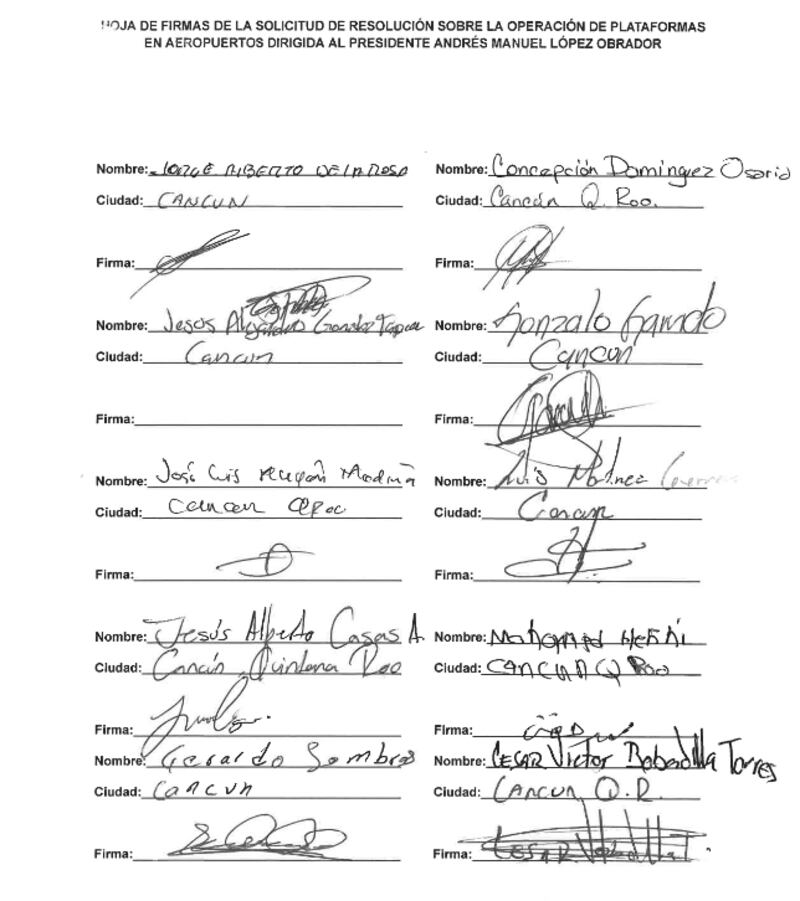 HOJA DE FIRMAS DE LA SOLICITUD DE RESOLUCIÓN SOBRE LA OPERACIÓN DE PLATAFORMAS
EN AEROPUERTOS DIRIGIDA AL PRESIDENTE ANDRÉS MANUEL LÓPEZ OBRADOR
Nombre: JORGE ALBERTO DE LA ROSA
Nombre: Concepción Dominguez Osorio
Ciudad: CANCUN
Ciudad: Cancún Q. Roo.
Firma:
Firma:
Nombre: Jesus Alejandro Gonzalez
Nombre: Gonzalo Garrido
Ciudad: Cancun
Ciudad: Cancun
Firma:
Firma:
Nombre: José Luis
Nombre: Luis Martinez
Ciudad: Cancun QRoo
Ciudad: Cancun
Firma:
Firma:
Nombre: Jesús Alberto Casas A.
Nombre: Mohamad
Ciudad: Cancún, Quintana Roo
Ciudad: CANCUN Q Roo
Firma:
Firma:
Nombre: Gerardo Sombra
Nombre: CESAR Victor Bobadilla Torres
Ciudad: Cancun
Ciudad: CANCUN Q.R.
Firma:
Firma: